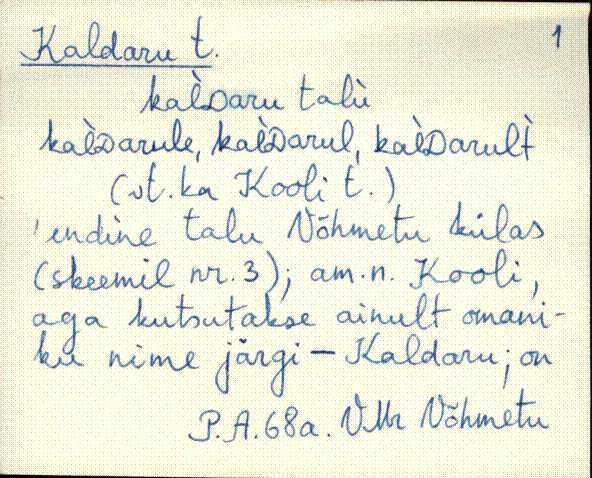 Kaldaru t. 1
kal̀Daru talù
kal̀Darule, kal̀Darul, kal̀Darult̀
(vt. ka Kooli t.)
'endine talu Nõhmetu külas
(skeemil nr. 3); am.n. Kooli,
aga kutsutakse ainult omani-
ku nime järgi – Kaldaru; on
P.A. 68a. VMr Nõhmetu